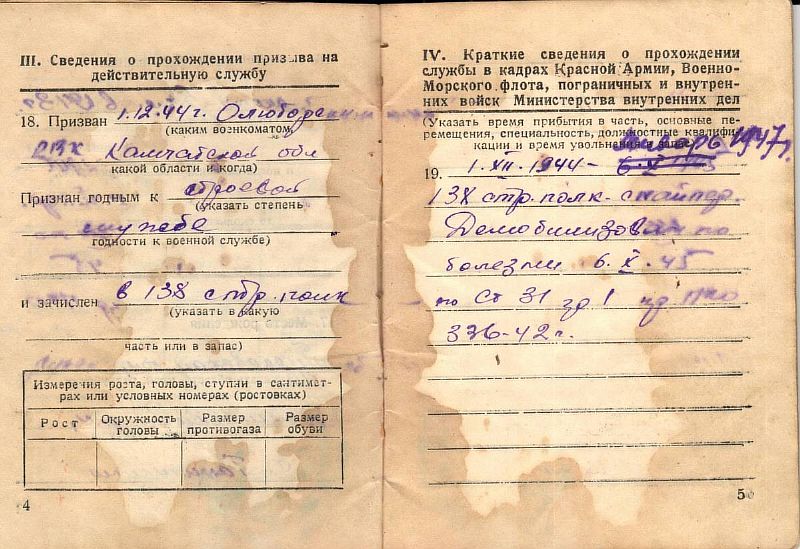 III. Сведения о прохождении призыва на
действительную службу
18. Призван 1.12.44г.
(каким военкоматом,
РВК Камчатской обл
какой области и когда)
Признан годным к строевой
(указать степень
службе
годности к военной службе)
и зачислен в 138 стр. полк
(указать в какую
часть или в запас)
Измерения роста, головы, ступни в сантимет-
рах или условных номерах (ростовках)
Рост Окружность головы Размер противогаза Размер обуви
4
IV. Краткие сведения о прохождении
службы в кадрах Красной Армии, Военно-
Морского флота, пограничных и внутрен-
них войск Министерства внутренних дел
(Указать время прибытия в часть, основные пе-
ремещения, специальность, должностные квалифи-
кации и время увольнения в запас)
январь 1947г.
19. 1.XII.1944- 6.X.45
138 стр. полк - снайпер.
Демобилизован по
болезни 6.X.45
по Ст 31 гр 1 пр НКО
336-42г.
5